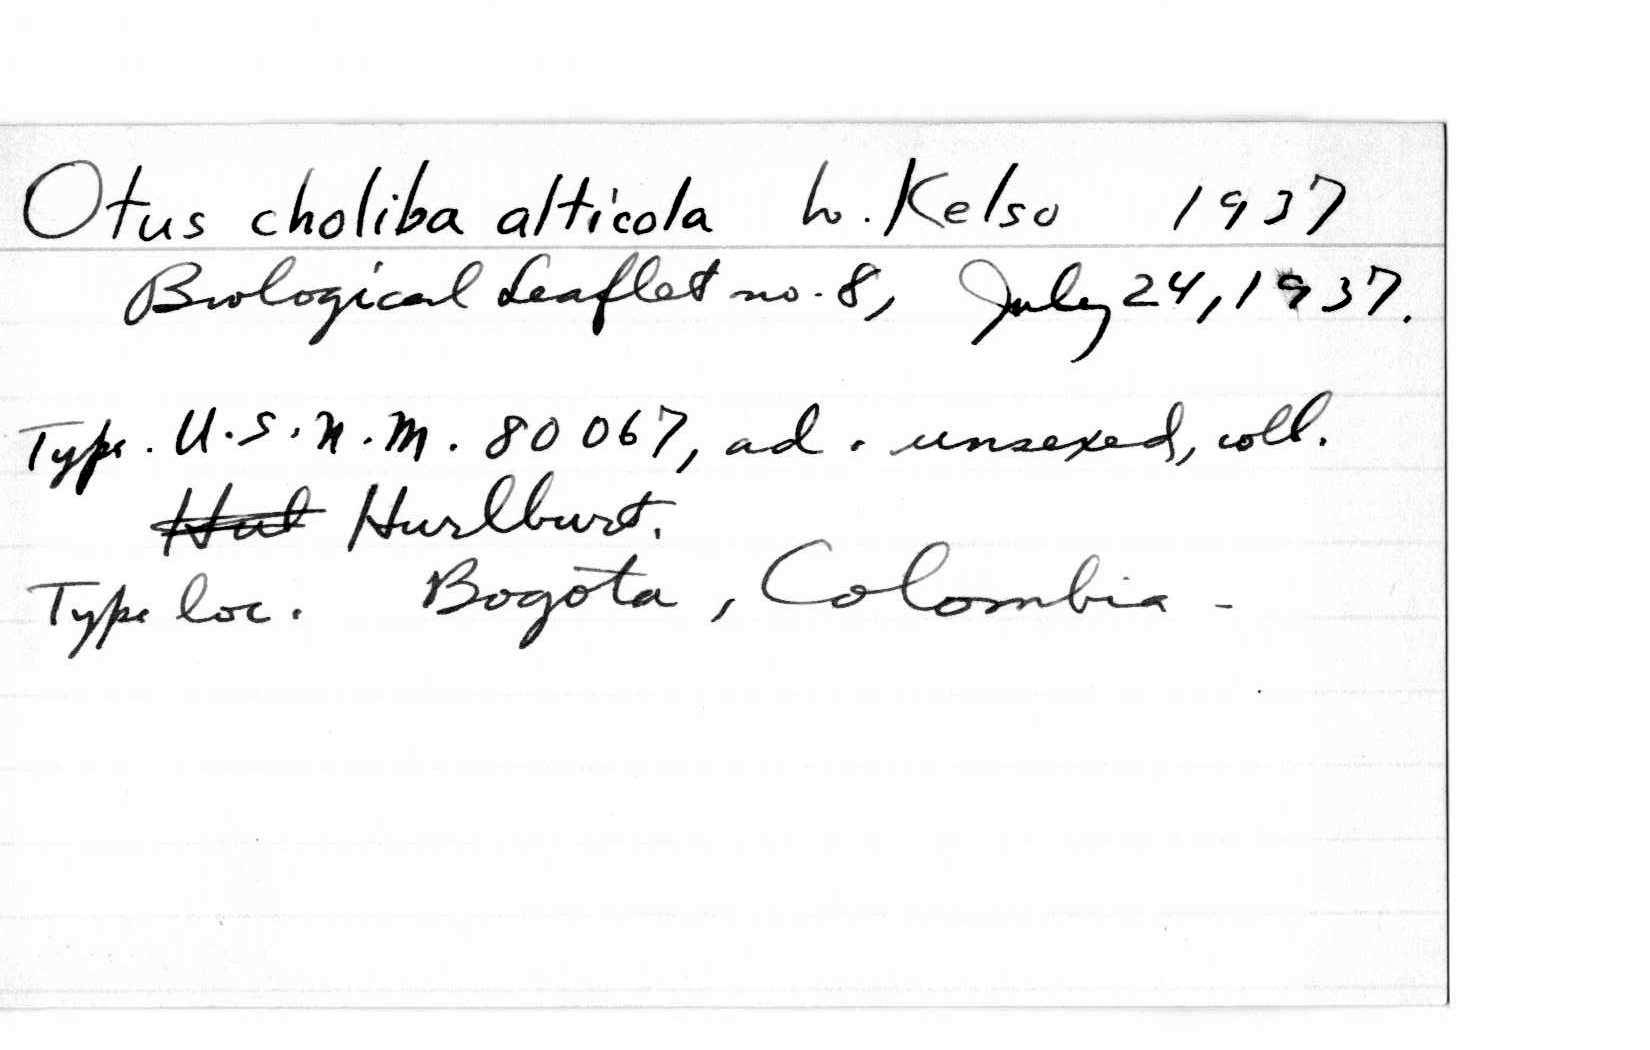 Otus choliba alticola L. Kelso 1937
Biological Leaflet no. 8, July 24, 1937.
Type. U.S.N.M. 80067, ad. unsexed, coll.
Hut Hurlburt.
Type loc. Bogota, Colombia -